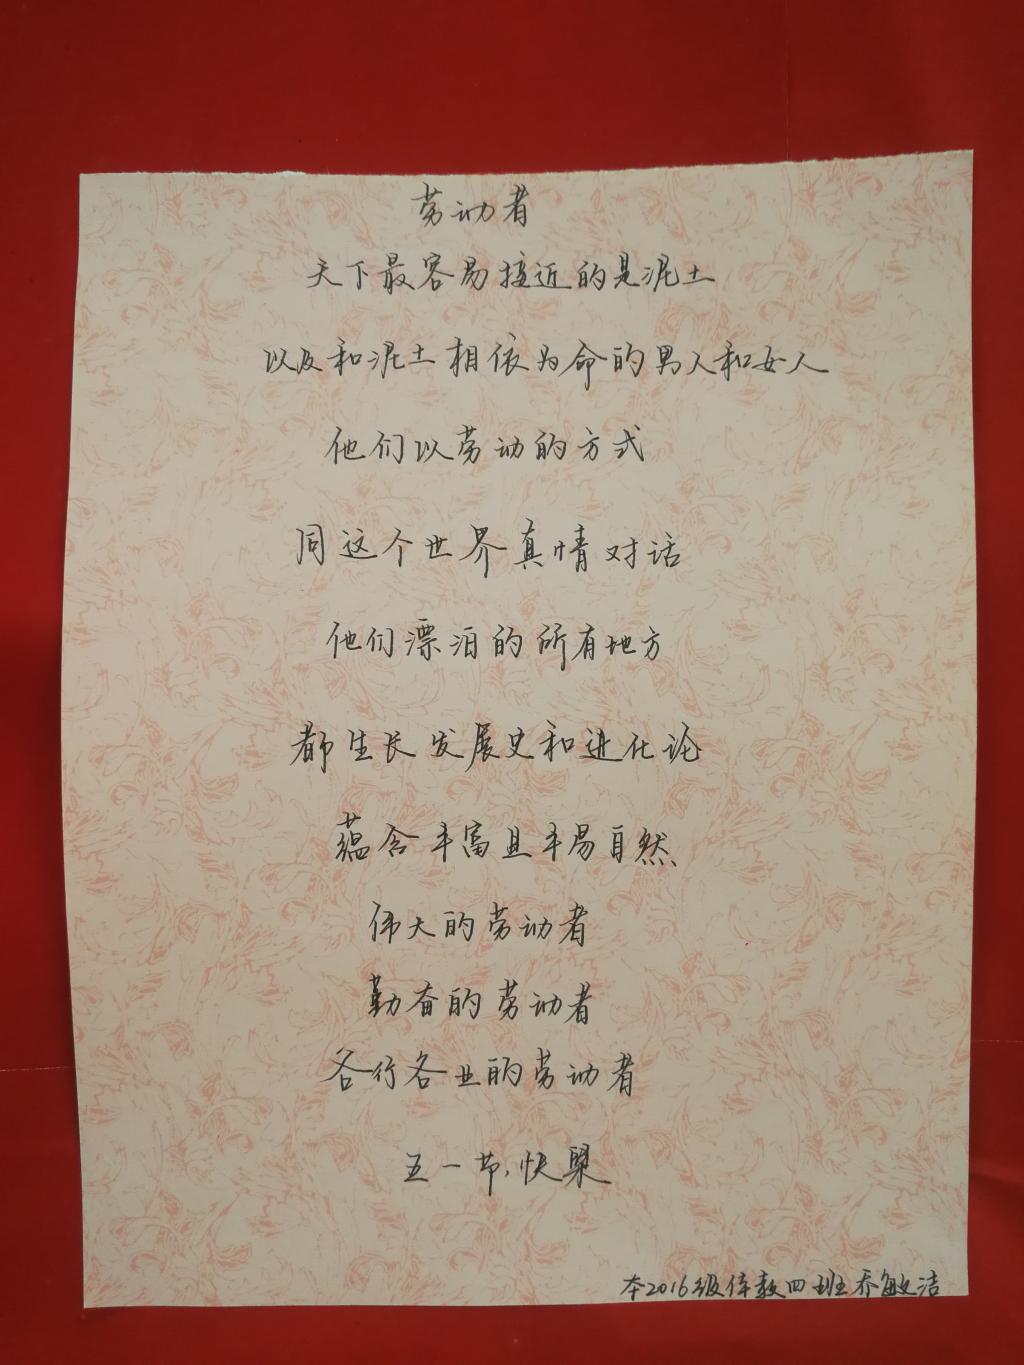 劳动者
天下最容易接近的是泥土
以及和泥土相依为命的男人和女人
他们以劳动的方式
同这个世界真情对话
他们漂泊的所有地方
都生长发展史和进化论
蕴含丰富且平易自然
伟大的劳动者
勤奋的劳动者
各行各业的劳动者
五一节,快乐
本2016级体教四班乔敏洁